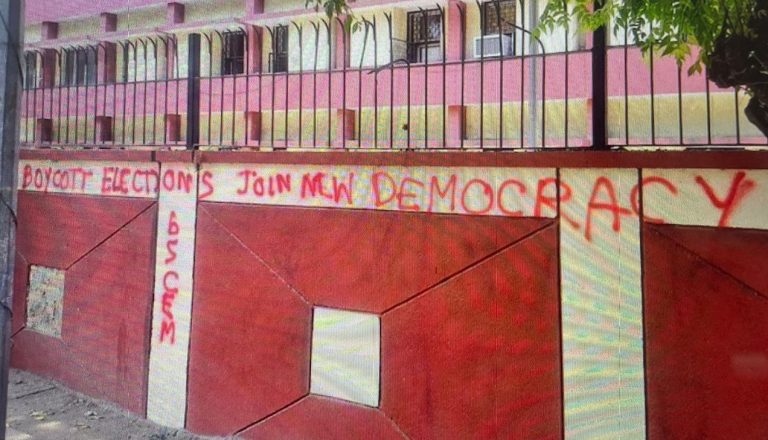 BOYCOTT ELECTIONS JOIN NEW DEMOCRACY
bSCEM